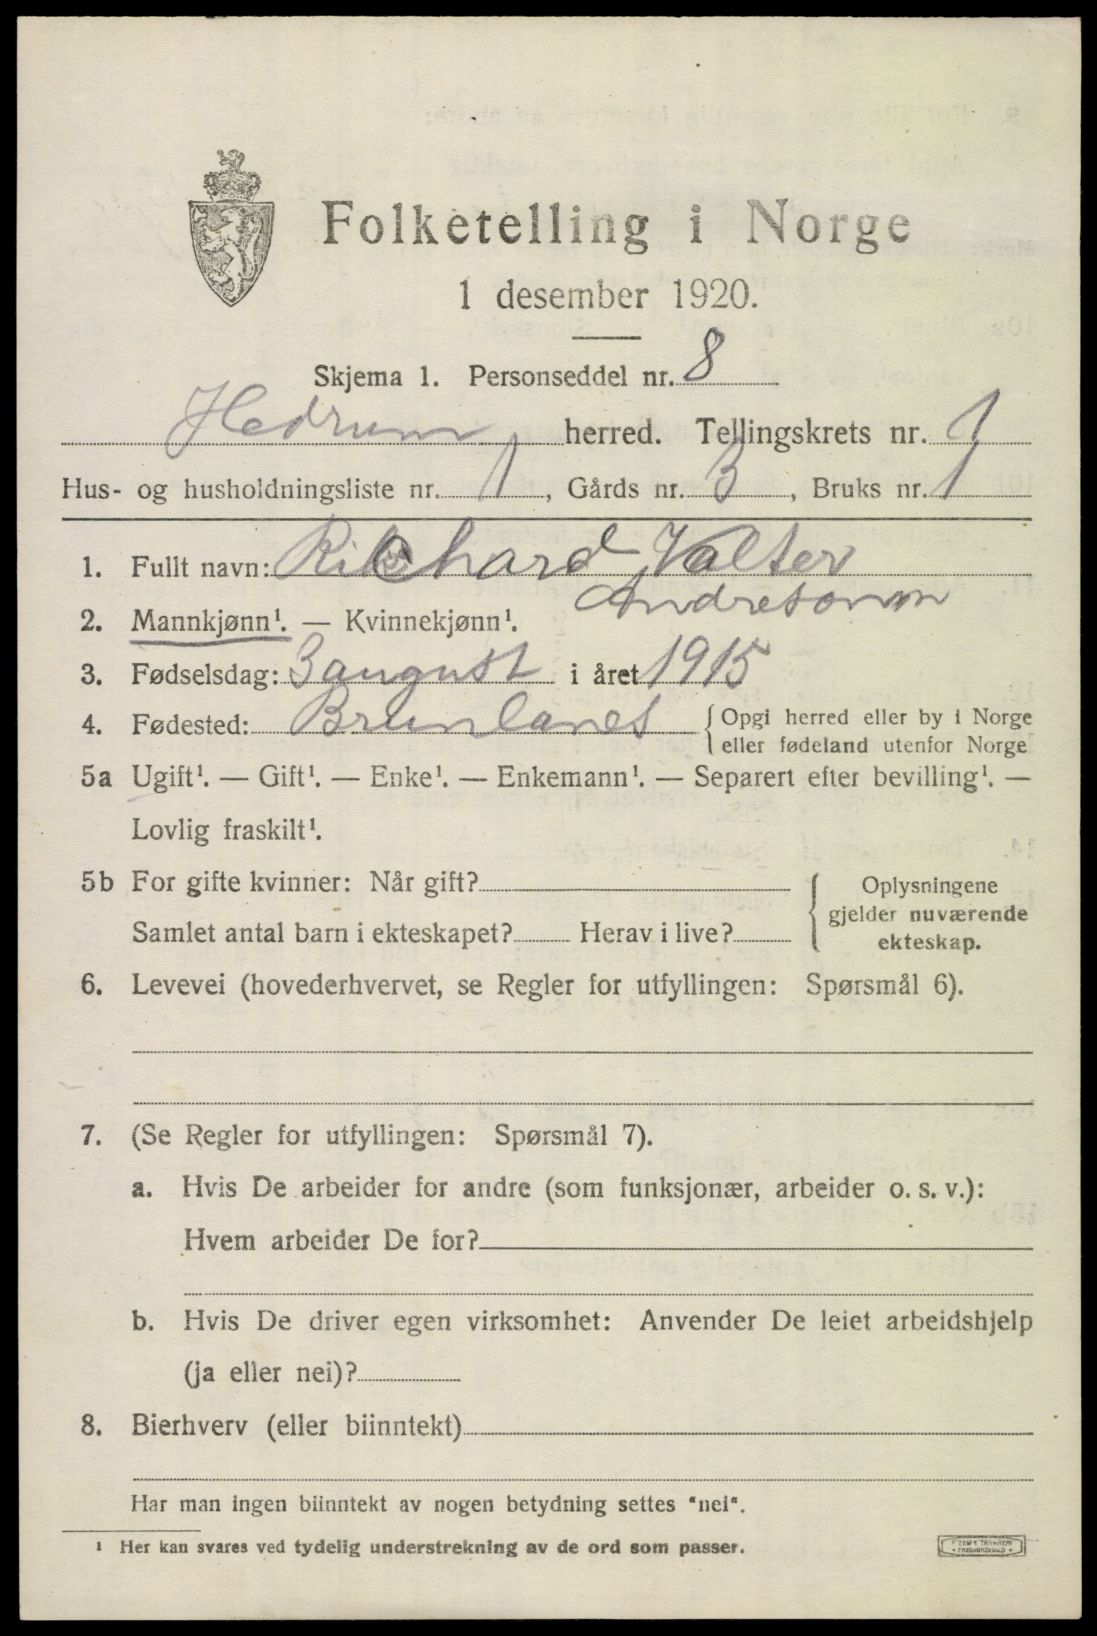 Folketelling i Norge
1 desember 1920.
Skjema 1. Personseddel nr. 8
Hedrum herred. Tellingskrets nr. 1
Hus- og husholdningsliste nr. 1, Gårds nr. 3, Bruks nr. 1
1. Fullt navn: Richard Valter
Andreson
2. Mannkjønn¹. — Kvinnekjønn¹.
3. Fødselsdag: 3 august i året 1915
4. Fødested: Brunlanes { Opgi herred eller by i Norge
eller fødeland utenfor Norge
5a Ugift¹. — Gift¹. — Enke¹. — Enkemann¹. — Separert efter bevilling¹. —
Lovlig fraskilt¹.
5b For gifte kvinner: Når gift?
Samlet antal barn i ekteskapet? Herav i live?
{ Oplysningene
gjelder nuværende
ekteskap.
6. Levevei (hovederhvervet, se Regler for utfyllingen: Spørsmål 6).
7. (Se Regler for utfyllingen: Spørsmål 7).
a. Hvis De arbeider for andre (som funksjonær, arbeider o. s. v.):
Hvem arbeider De for?
b. Hvis De driver egen virksomhet: Anvender De leiet arbeidshjelp
(ja eller nei)?
8. Bierhverv (eller biinntekt)
Har man ingen biinntekt av nogen betydning settes "nei".
¹ Her kan svares ved tydelig understrekning av de ord som passer.